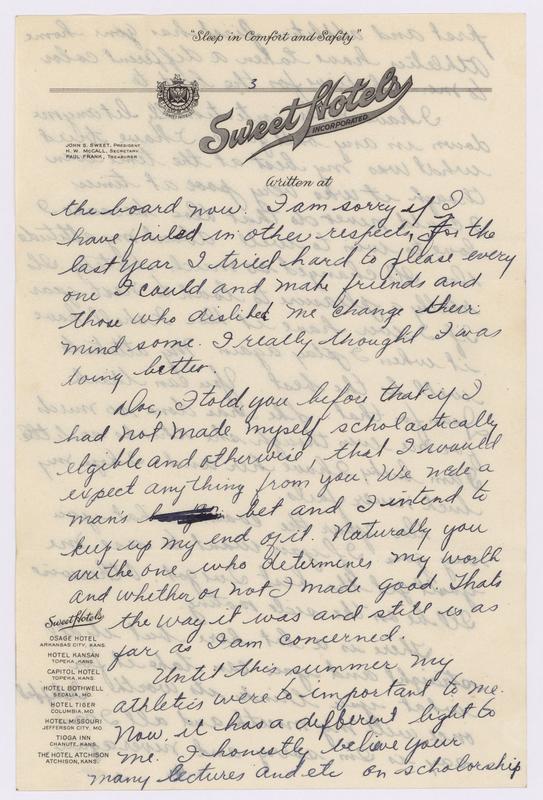 "Sleep in Comfort and Safety"
3
Sweet Hotels
INCORPORATED
SWEET HOTELS
JOHN S. SWEET, PRESIDENT
H. W. McCALL, SECRETARY
PAUL FRANK, TREASURER
Written at
the board now. I am sorry if I
have failed in other respects, For the
last year I tried hard to please every
one I could and make friends and
those who disliked me change their
mind some. I really thought I was
doing better.
Doc, I told you before that if I
had not made myself scholastically
elgible and otherwise, that I would
expect anything from you. We made a
man's bet and I intend to
keep up my end of it. Naturally you
are the one who determines my worth
and whether or not I made good. Thats
the way it was and still is as
far as I am concerned.
Until this summer my
athletics were to important to me.
Now, it has a different light to
me. I honestly believe your
many lectures and etc on scholorship
Sweet Hotels
OSAGE HOTEL
ARKANSAS CITY, KANS.
HOTEL KANSAN
TOPEKA, KANS.
CAPITOL HOTEL
TOPEKA, KANS.
HOTEL BOTHWELL
SEDALIA, MO.
HOTEL TIGER
COLUMBIA, MO.
HOTEL MISSOURI
JEFFERSON CITY, MO.
TIOGA INN
CHANUTE, KANS.
THE HOTEL ATCHISON
ATCHISON, KANS.